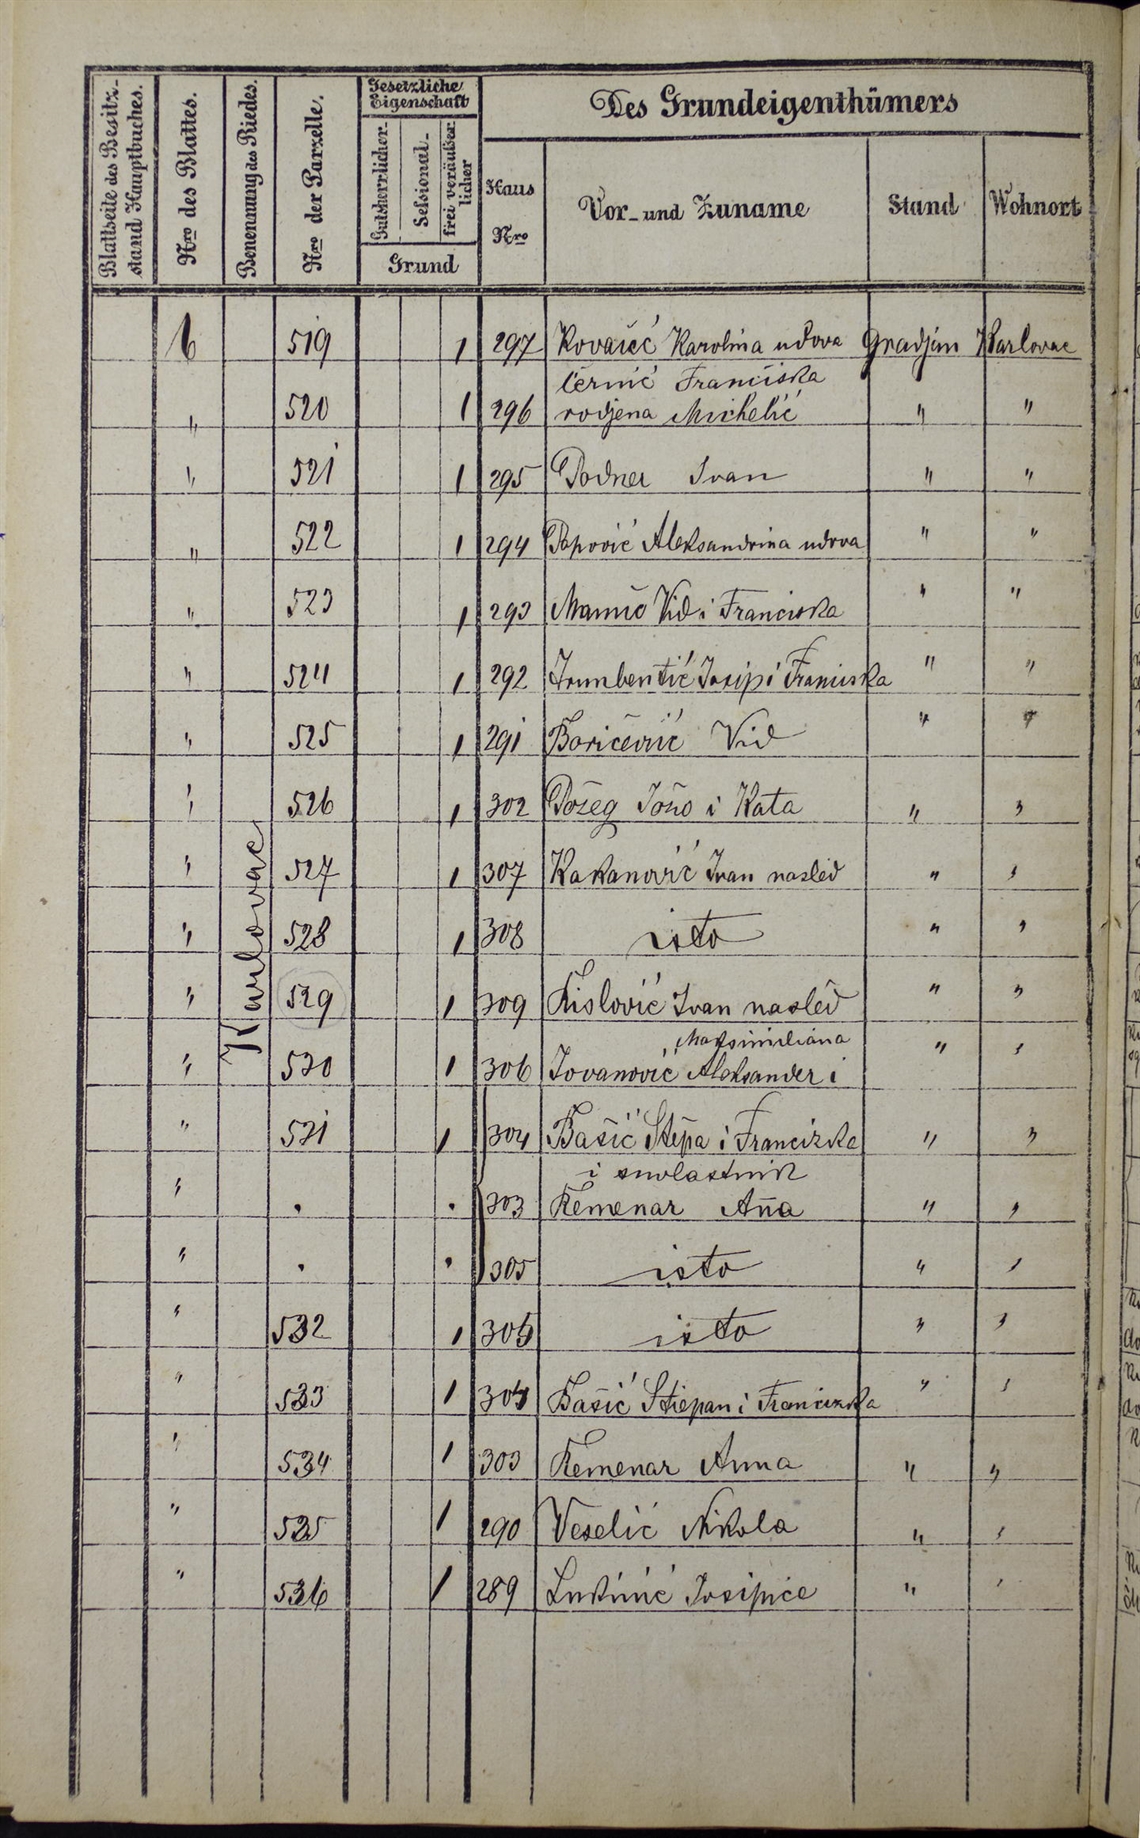 Blattseite des Besitz-
stand Hauptbuches.
Nro des Blattes.
Benennung des Riedes.
Nro der Parzelle.
Gesetzliche
Eigenschaft
Gutsherrlicher
Sessional-
frei veräußer
licher
Grund
Des Grundeigenthümers
Haus
Nro
Vor- und Zuname
Stand
Wohnort
Karlovac
6 519 1 297 Kovačić Karolina udova Gradjan Karlovac
Černić Franciska
„ 520 1 296 rodjena Michelić „ „
„ 521 1 295 Podner Ivan „ „
„ 522 1 294 Popović Aleksandrina udova „ „
„ 523 1 293 Vid i Franciska „ „
„ 524 1 292 Josip i Franciska „ „
„ 525 1 291 Boričević Vid „ „
„ 526 1 302 Požeg Jožo i Kata „ „
„ 527 1 307 Kakanović Ivan naslěd „ „
„ 528 1 308 isto „ „
„ 529 1 309 Kislović Ivan naslěd „ „
Maksimiliana
„ 530 1 306 Jovanović Aleksander i „ „
„ 531 1 304 Bašić Stěpa i Franciska „ „
i suvlastnik
„ . . 303 Kemenar Ana „ „
„ . . 305 isto „ „
„ 532 1 305 isto „ „
„ 533 1 304 Bašić Stiepan i Franciska „ „
„ 534 1 303 Kemenar Anna „ „
„ 535 1 290 Veselić Nikola „ „
„ 536 1 289 Josipice „ „